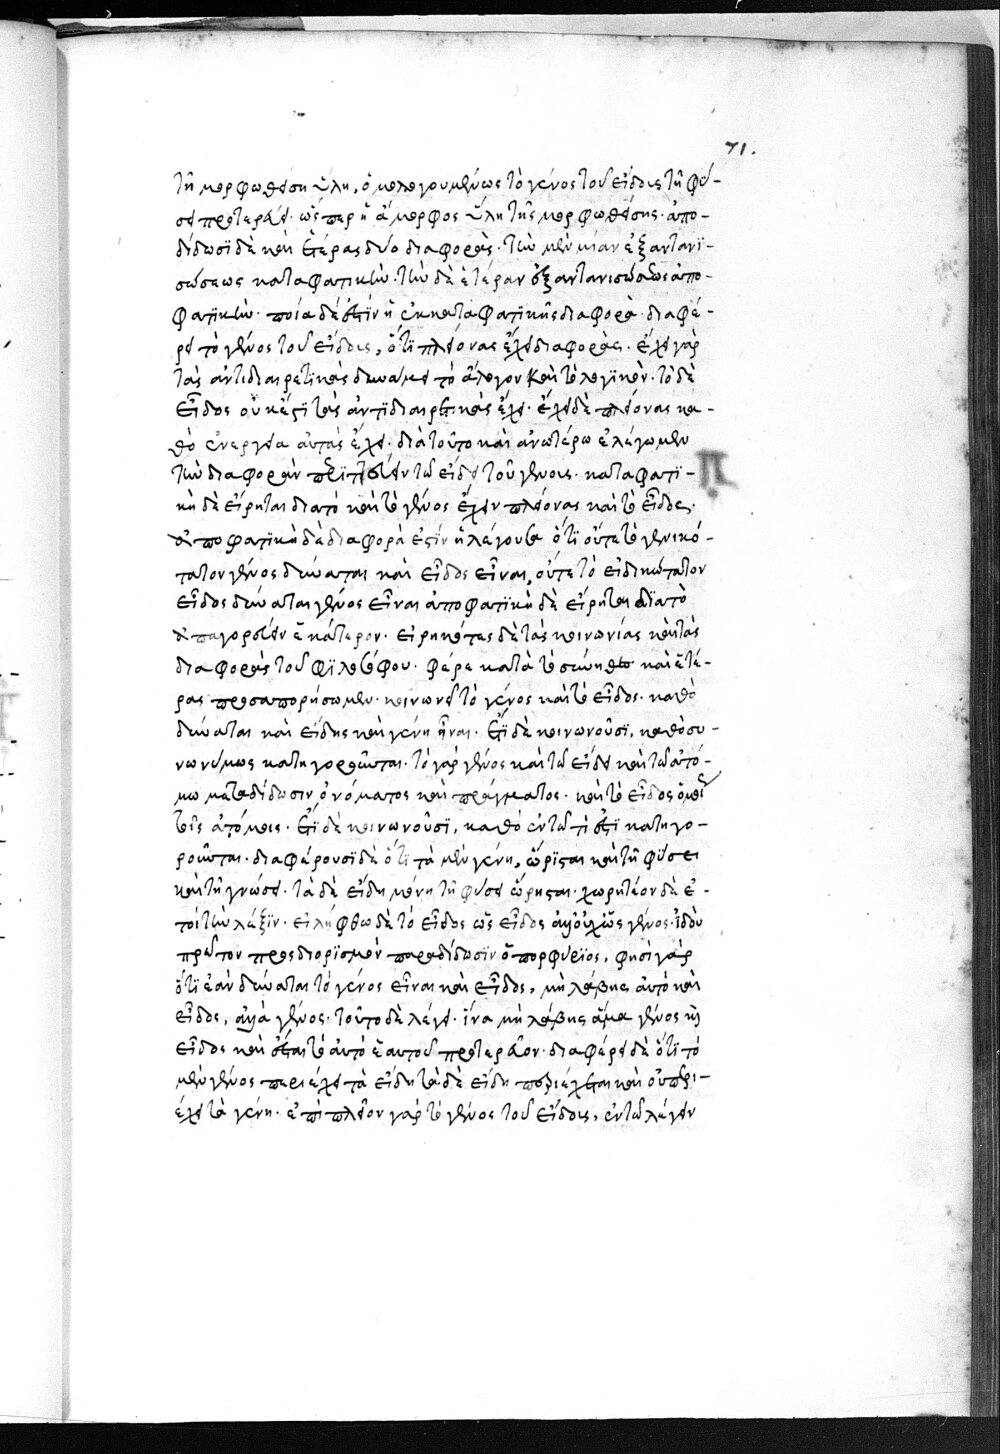 71.
τῆ μορφωθείση ὕλη, ὁμολογουμένως τὸ γένος τοῦ εἴδους τῆ φύ-
σει προτερεύει· ὥσπερ ἡ ἄμορφος ὕλη τῆς μορφωθείσης· ἀπο-
δίδωσι δὲ καὶ ἑτέρας δύο διαφορὰς· τὴν μὲν μίαν ἐξ ἀντανϊ-
σώσεως καταφατικὴν· τὴν δὲ ἑτέραν ἐξ ἀντανισώσεως ἀπο-
φατικὴν· ποία δέ ἐστιν ἡ ἐκ καταφατικῆς διαφορὰ· διαφέ-
ρει τὸ γένος τοῦ εἴδους, ὅτι πλέονας ἔχει διαφοράς· ἔχει γὰρ
τὰς ἀντιδιαιρετικὰς δυνάμει τὸ ἄλογον καὶ τὸ λογικὸν· τὸ δὲ
εἶδος οὐκέτι τὰς ἀντιδιαιρετικὰς ἔχει· ἔχει δὲ πλέονας κα-
θὸ ἐνεργεία αὐτὰς ἔχει· διὰ τοῦτο καὶ ἀνωτέρω ἐλέγωμεν
τὴν διαφορὰν περιττεύειν τῶ εἴδει τοῦ γένους· καταφατϊ-
κὴ δὲ εἴρηται διατὸ καὶ τὸ γένος ἔχειν πλέονας καὶ τὸ εἶδος·
ἀποφατικὴ δὲ διαφορὰ ἐστίν ἡ λέγουσα ὅτι οὔτε τὸ γενικό-
τατον γένος δύναται καὶ εἶδος εἶναι, οὔτε τὸ εἰδικώτατον
εἶδος δύναται γένος εἶναι ἀποφατικὴ δὲ εἴρηται διατὸ
ἀπαγορεύειν ἑκάτερον· εἰρηκότες δὲ τὰς κοινωνίας καὶ τὰς
διαφορὰς τοῦ φιλοσόφου· φέρε κατὰ τὸ σύνηθες καὶ ἑτέ-
ρας προσαπορήσωμεν· κοινωνεῖ τὸ γένος καὶ τὸ εἶδος· καθὸ
δύναται καὶ εἴδης καὶ γένη εἶναι· ἔτι δὲ κοινωνοῦσι, καθὸ συ-
νωνύμως κατηγοροῦνται· τὸ γὰρ γένος καὶ τῶ εἴδει καὶ τῶ ἀτό-
μω μεταδίδωσιν ὀνόματος καὶ πράγματος· καὶ τὸ εἶδος ὁμοί
τοῖς ἀτόμοις· ἔτι δὲ κοινωνοῦσι, καθὸ ἐν τῶ τί ἐστι κατηγο-
ροῦνται· διαφέρουσι δὲ ὅτι τὰ μὲν γένη, ὥρισται καὶ τῆ φύσει
καὶ τῆ γνώσει· τὰ δὲ εἴδη μόνη τῆ φύσει ὥρησται· χωρητέον δὲ ἐ-
πί τὴν λέξιν· εἰλήφθω δὲ τὸ εἶδος ὡς εἶδος ἀλλ' οὐχ ὡς γένος· ἰδοὺ
πρῶτον προσδιορισμὸν παραδίδωσϊν ὁ πορφύρϊος, φησὶ γὰρ
ὅτι ἐὰν δύναται τὸ γένος εἶναι καὶ εἶδος, μὴ λάβης αὐτὸ καὶ
εἶδος, ἀλλὰ γένος· τοῦτο δὲ λέγει· ἵνα μὴ λάβης ἅμα γένος καὶ
εἶδος καὶ ἔσται τὸ αὐτὸ ἑαυτοῦ προτερεῦον· διαφέρει δὲ ὅτι τὸ
μὲν γένος περιέχει τὰ εἴδη τὰ δὲ εἴδη περιέχεται καὶ οὐ περι-
έχει τὰ γένη· ἐπὶ πλεῖον γὰρ τὸ γένος τοῦ εἴδους, ἐν τῶ λέγειν